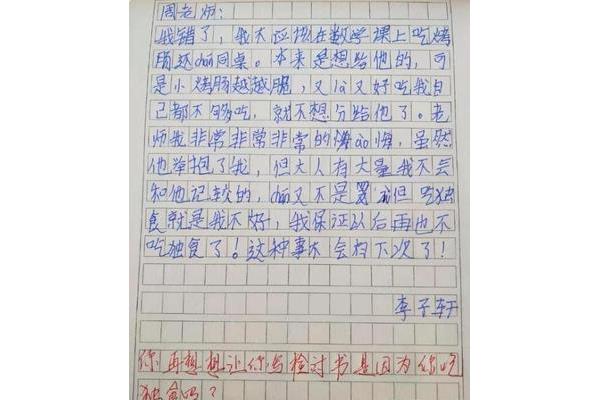 周老师：
我错了，我不应该在数学课上吃烤
肠还dou同桌。本来是想给他的，可
是小烤肠越越脆，又la又好吃我自
己都不够吃，就不想分给他了。老
师我非常非常非常的ao悔，虽然
他举抱了我，但大人有大量我不会
和他记较的，dou又不是 但 吃独
食就是我不好，我保证以后再也不
吃独食了！这种事不会有下次了！
李子轩
你再想想让你写检讨书是因为你吃
独食吗？